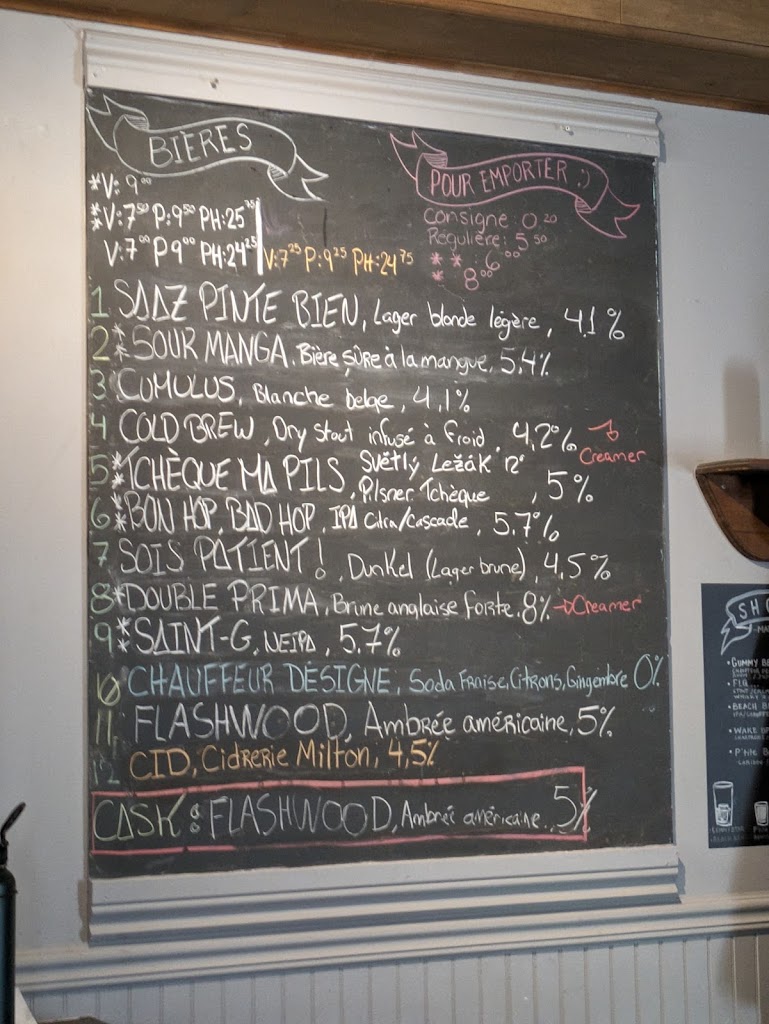 BIÈRES
*V: 9⁰⁰
**V: 7⁵⁰ P: 9⁵⁰ PH: 25⁷⁵
V: 7⁰⁰ P 9⁰⁰ PH: 24²⁵
V: 7²⁵ P: 9²⁵ PH: 24⁷⁵
POUR EMPORTER :)
Consigne: 0²⁰
Régulière: 5⁵⁰
* * : 6⁰⁰
* 8⁰⁰
1 SAAZ PINTE BIEN, Lager blonde légère, 4,1%
2 ** SOUR MANGA, Bière sûre à la mangue, 5.4%
3 CUMULUS, Blanche belge, 4,1%
4 COLD BREW, Dry Stout infusé à froid, 4,2% → Creamer
5 ** TCHÈQUE MA PILS, Světlý Ležák 12°
Pilsner Tchèque, 5%
6 ** BON HOP, BAD HOP, IPA Citra/Cascade, 5.7%
7 SOIS PATIENT!, Dunkel (Lager brune), 4,5%
8 * DOUBLE PRIMA, Brune anglaise forte. 8% → Creamer
9 ** SAINT-G, NEIPA, 5.7%
10 CHAUFFEUR DÉSIGNÉ, Soda Fraise, Citrons, Gingembre 0%
11 FLASHWOOD, Ambrée américaine, 5%
12 CID, Cidrerie Milton, 4,5%
CASK: FLASHWOOD, Ambrée américaine, 5%
SHO
• GUMMY BE
• BEACH B
• WAKE UP
• P'tite B